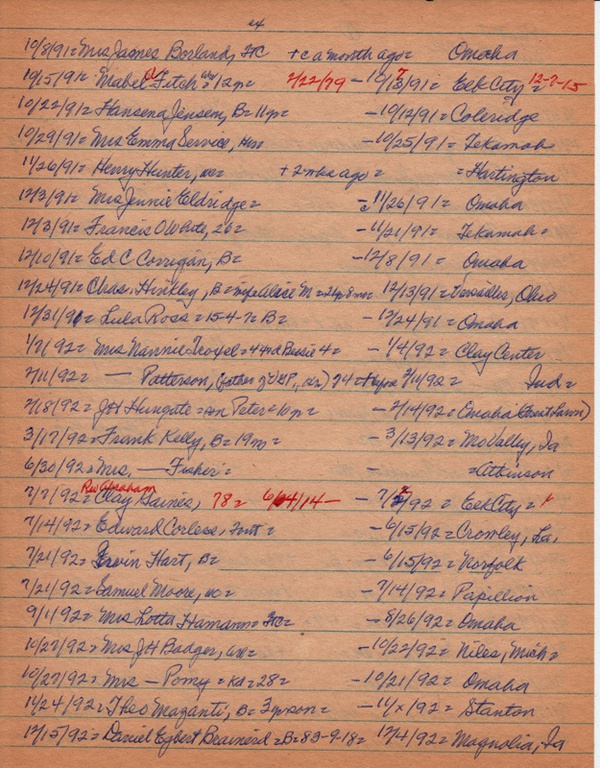 10/8/91= Mrs James Borland, HC + c a month ago= Omaha
10/15/91= Mabel Fitch = 12m= 2/22/79 - 10/13/91= EekCity 12-7-15
10/22/91= Hansena Jensen, B= 11m= -10/12/91= Coleridge
10/29/91= Mrs Emma Service, -10/25/91= Tekamah
11/26/91= Henry Hunter, + 2 wks ago= =Hartington
12/3/91= Mrs Jennie Eldridge= -11/26/91= Omaha
12/3/91= Francis O White, 26= -11/21/91= Tekamah=
12/10/91= Ed C Corrigan, B= -12/8/91= Omaha
12/24/91= Chas. Hinkley, B= Alice M = 12/13/91= Versailles, Ohio
12/31/91= Lula Ross=15-4-7= B= -12/24/91= Omaha
1/7/92= Mrs Nannie Troxel= 44 and Bessie 4= -1/4/92= Clay Center
2/11/92= — Patterson, (father of 74= 2/10/92= Ind=
2/18/92= JH Hungate= Peter=10m= -2/14/92= Omaha (Forest Lawn)
3/17/92= Frank Kelly, B=19m= -3/13/92= MoValley, Ia
6/30/92= Mrs. — Fisher= - =Atkinson
7/7/92= Rev Abraham Clay Gaines, 78= 6/24/14- -7/5/92= EekCity=
7/14/92= Edward Corless, -6/15/92= Crowley, La,
7/21/92= Ervin Hart, B= -6/15/92= Norfolk
7/21/92= Samuel Moore, -7/14/92= Papillion
9/1/92= Mrs Lotta Hamann= HC= -8/26/92= Omaha
10/27/92= Mrs JH Badger, -10/22/92= Niles, Mich=
10/27/92= Mrs — Pomy = Kd= 28= -10/21/92= Omaha
11/24/92= Theo Mazanti, B= 3 yr son= -11/x/92= Stanton
12/15/92= Daniel Egbert Brainerd= B= 83-9-18= 12/4/92= Magnolia, Ia